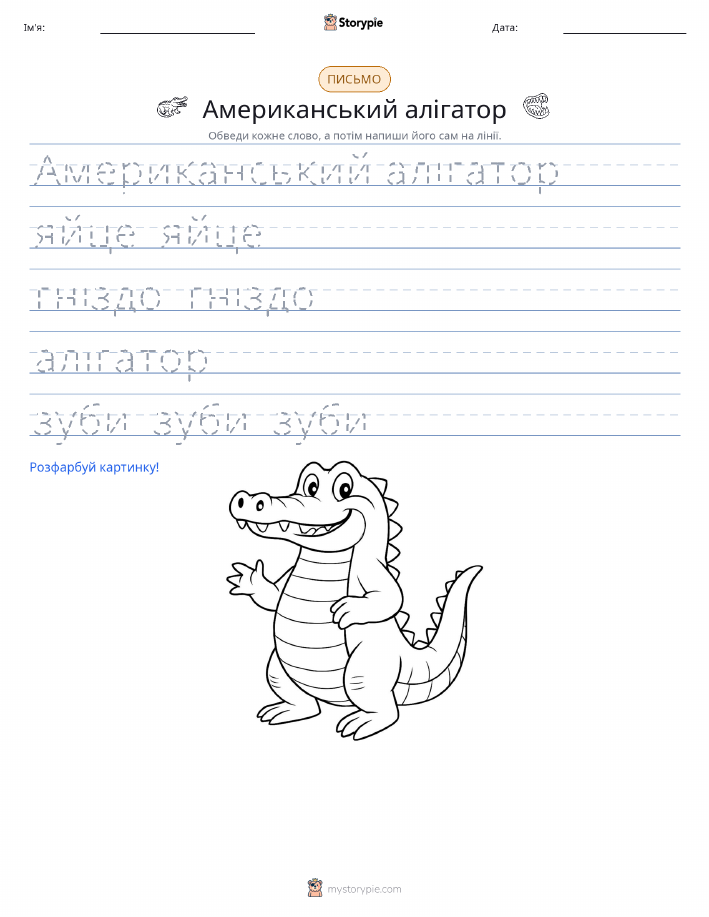 Ім'я:
Storypie
Дата:
ПИСЬМО
Американський алігатор
Обведи кожне слово, а потім напиши його сам на лінії.
Американський алігатор
яйце яйце
гніздо гніздо
алігатор
зуби зуби зуби
Розфарбуй картинку!
mystorypie.com